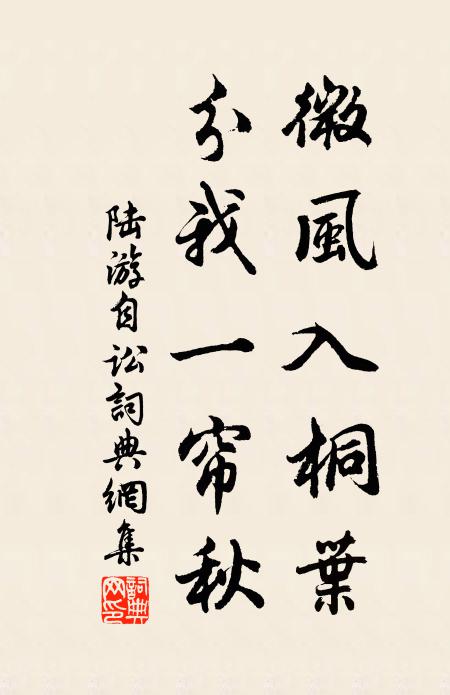 微風入桐葉
分我一帘秋
陆游自訟詞典網集
詞典网印